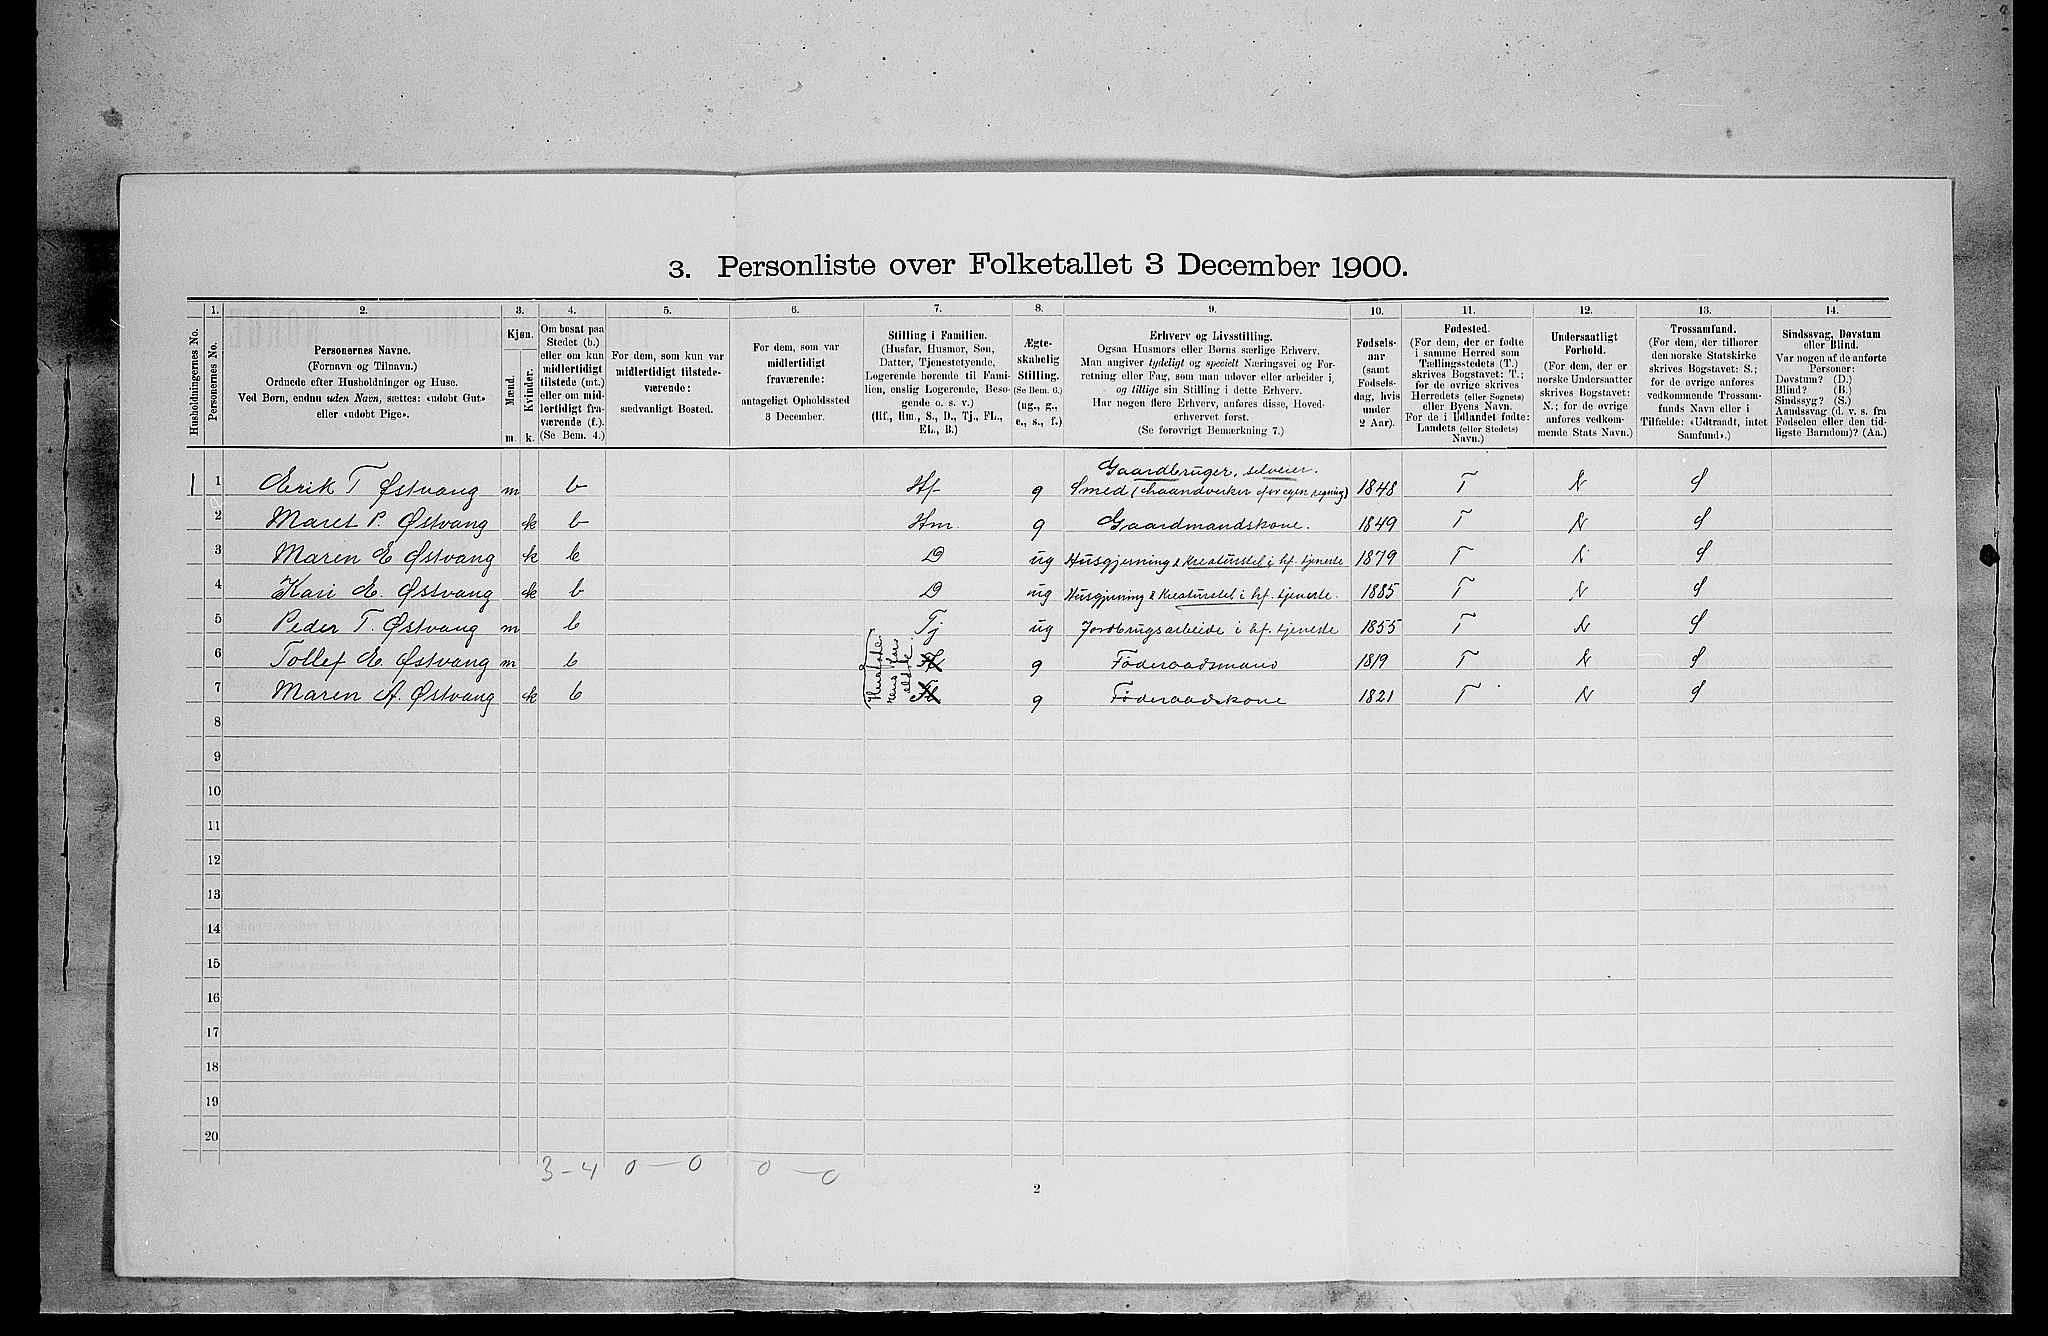 3. Personliste over Folketallet 3 December 1900.
Husholdningernes No.
1.
Personernes No.
2.
Personernes Navne.
(Fornavn og Tilnavn.)
Ordnede efter Husholdninger og Huse.
Ved Børn, endnu uden Navn, sættes: «udøbt Gut»
eller «udøbt Pige».
3.
Kjøn.
Mænd.
Kvinder.
m.
k.
4.
Om bosat paa
Stedet (b.)
eller om kun
midlertidigt
tilstede (mt.)
eller om mid-
lertidigt fra-
værende (f.).
(Se Bem. 4.)
5.
For dem, som kun var
midlertidigt tilstede-
værende:
sædvanligt Bosted.
6.
For dem, som var
midlertidigt
fraværende:
antageligt Opholdssted
3 December.
7.
Stilling i Familien.
(Husfar, Husmor, Søn,
Datter, Tjenestetyende,
Logerende hørende til Fami-
lien, enslig Logerende, Besø-
gende o. s. v.)
(Hf., Hm., S., D., Tj., FL.,
EL., B.)
8.
Ægte-
skabelig
Stilling.
(Se Bem. 6.)
(ug., g.,
e., s., f.)
9.
Erhverv og Livsstilling.
Ogsaa Husmors eller Børns særlige Erhverv.
Man angiver tydeligt og specielt Næringsvei og For-
retning eller Fag, som man udøver eller arbeider i,
og tillige sin Stilling i dette Erhverv.
Har nogen flere Erhverv, anføres disse, Hoved-
erhvervet først.
(Se forøvrigt Bemærkning 7.)
10.
Fødsels-
aar
(samt
Fødsels-
dag, hvis
under
2 Aar).
11.
Fødested.
(For dem, der er fødte
i samme Herred som
Tællingsstedets (T.)
skrives Bogstavet: T.;
for de øvrige skrives
Herredets (eller Sognets)
eller Byens Navn.
For de i Udlandet fødte:
Landets (eller Stedets)
Navn.)
12.
Undersaatligt
Forhold.
(For dem, der er
norske Undersaatter
skrives Bogstavet:
N.; for de øvrige
anføres vedkom-
mende Stats Navn.)
13.
Trossamfund.
(For dem, der tilhører
den norske Statskirke
skrives Bogstavet: S.;
for de øvrige anføres
vedkommende Trossam-
funds Navn eller i
Tilfælde: «Udtraadt, intet
Samfund».)
14.
Sindssvag, Døvstum
eller Blind.
Var nogen af de anførte
Personer:
Døvstum? (D.)
Blind? (B.)
Sindssyg? (S.)
Aandssvag (d. v. s. fra
Fødselen eller den tid-
ligste Barndom)? (Aa.)
Gaardbruger, selveier.
1 1 Erik T Østvang m b Hf g Smed (Haandverker for egen regning) 1848 T N S
2 Maret P. Østvang k b Hm. g Gaardmandskone. 1849 T N S
3 Maren E Østvang k b D ug Husgjerning & Kreaturstel i hf. tjeneste 1879 T N S
4 Kari E. Østvang k b D ug Husgjerning & Kreaturstel i hf. tjeneste. 1885 T N S
5 Peder T. Østvang m b Tj ug Jordbrugsarbeide i hf. tjeneste 1855 T N S
6 Tollef E. Østvang m b g Føderaadsmand 1819 T N S
7 Maren A. Østvang k b Fl g Føderaadskone 1821 T N S
8
9
10
11
12
13
14
15
16
17
18
19
20
3-4 0-0 0-0
2